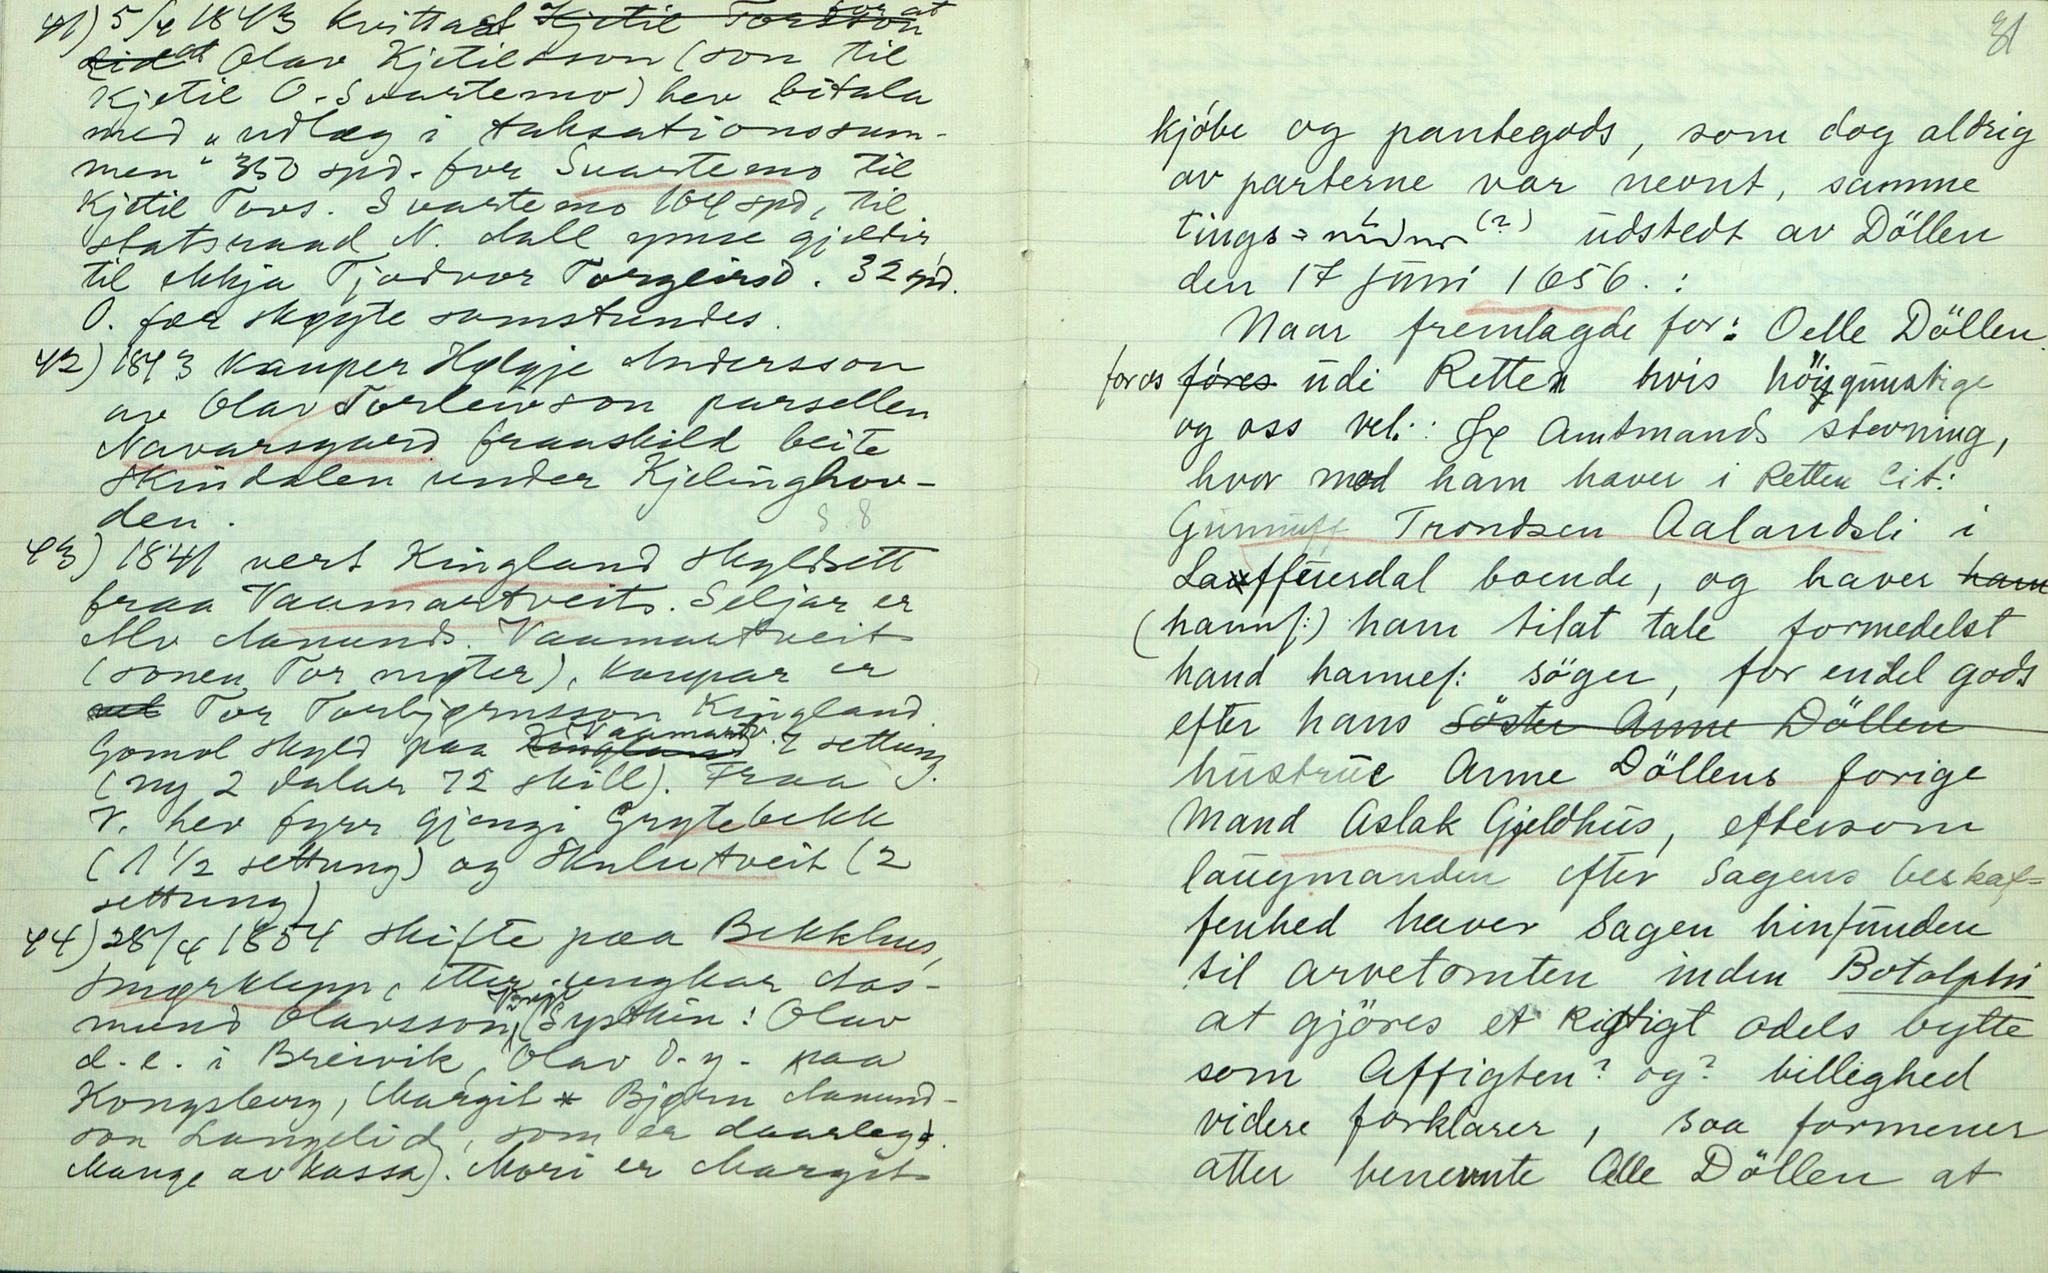 41) 5/4 1843 kvittast Kjetil Torsson for at
Olav Kjetilsson (son til
Kjetil O. Svartemo) hev bitala
med „udlæg i taksationssum-
men“ 350 spd. for Svartemo til
Kjetil Tovs. Svartemo 104 spd, til
statsraad N. Aall ymse gjeldir,
til ekkja Tjodvor Torgeirsd. 32 spd.
O. fær skøyte samstundes.
42) 1843 kauper Helgje Andersson
av Olav Torleivson parsellen
Navarsgard fraaskild beite
Skindalen under Kjelinghov-
den. S. 8
43) 1841 vert Kingland skyldsett
fraa Vaamartveit. Seljar er
Alv Aamunds. Vaamartveit
(sonen Tor nyter), kaupar er
Tor Torbjørnsson Kingland.
Gomol skyld paa Kingland Vaamartv. 4 settung
(ny 2 dalar 72 skill). Fraa
V. hev fyrr gjengi Grytebekk
(1 1/2 settung) og Skulutveit (2
settung)
44) 28/4 1854 skifte paa Bekkhus,
Smørklepp, etter ungkar Aas-
mund Olavsson, (Syskin: Olav
d. e. i Breivik, Olav d. y. paa
Kongsberg, Margit * Bjørn Aamund-
son Langelid, som er daarleg.
Mange av kassa). Mori er Margit
31
kjøbe og pantegods, som dog aldrig
av parterne var nevnt, samme
tings= (?) udstedt av Döllen
den 17 Juni 1656. :
Naar fremlagde for: Oelle Döllen
for os føres udi Retten hvis höiggunstige
og oss vel: Hr Amtmands stevning,
hvor med ham haver i Retten Cit:
Gunnuff Trondsen Aalandsli i
Lauffuersdal boende, og haver ham
(hannf:) ham tilat tale formedelst
hand hannef: söger, for endel gods
efter hans Söster Anne Döllen
hustrue Anne Döllens forige
Mand Aslak Gjeldhus, eftersom
laugmanden efter Sagens beskaf=
fenhed haver Sagen hinfunden
til arvetomten inden Botolphi
at gjöres et Rigtigt odels bytte
som Affigten? og? billighed
videre forklarer, saa formener
atter benevnte Olle Döllen at